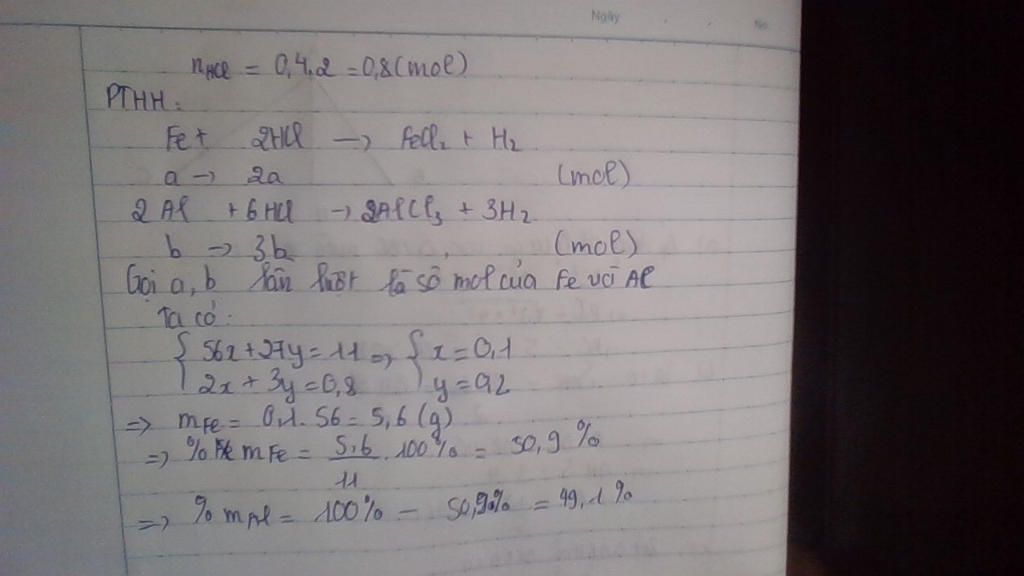 Ngày
No.
nHCl = 0,4.2 = 0,8 (mol)
PTHH:
Fe + 2HCl → FeCl2 + H2
a → 2a (mol)
2Al + 6HCl → 2AlCl3 + 3H2
b → 3b (mol)
Gọi a, b lần lượt là số mol của Fe với Al
Ta có:
{ 56x + 27y = 11 => { x = 0,1
2x + 3y = 0,8 y = 0,2
=> mFe = 0,1. 56 = 5,6 (g)
=> % mFe = 5,6/11 . 100% = 50,9 %
=> % mAl = 100% - 50,9% = 49,1 %